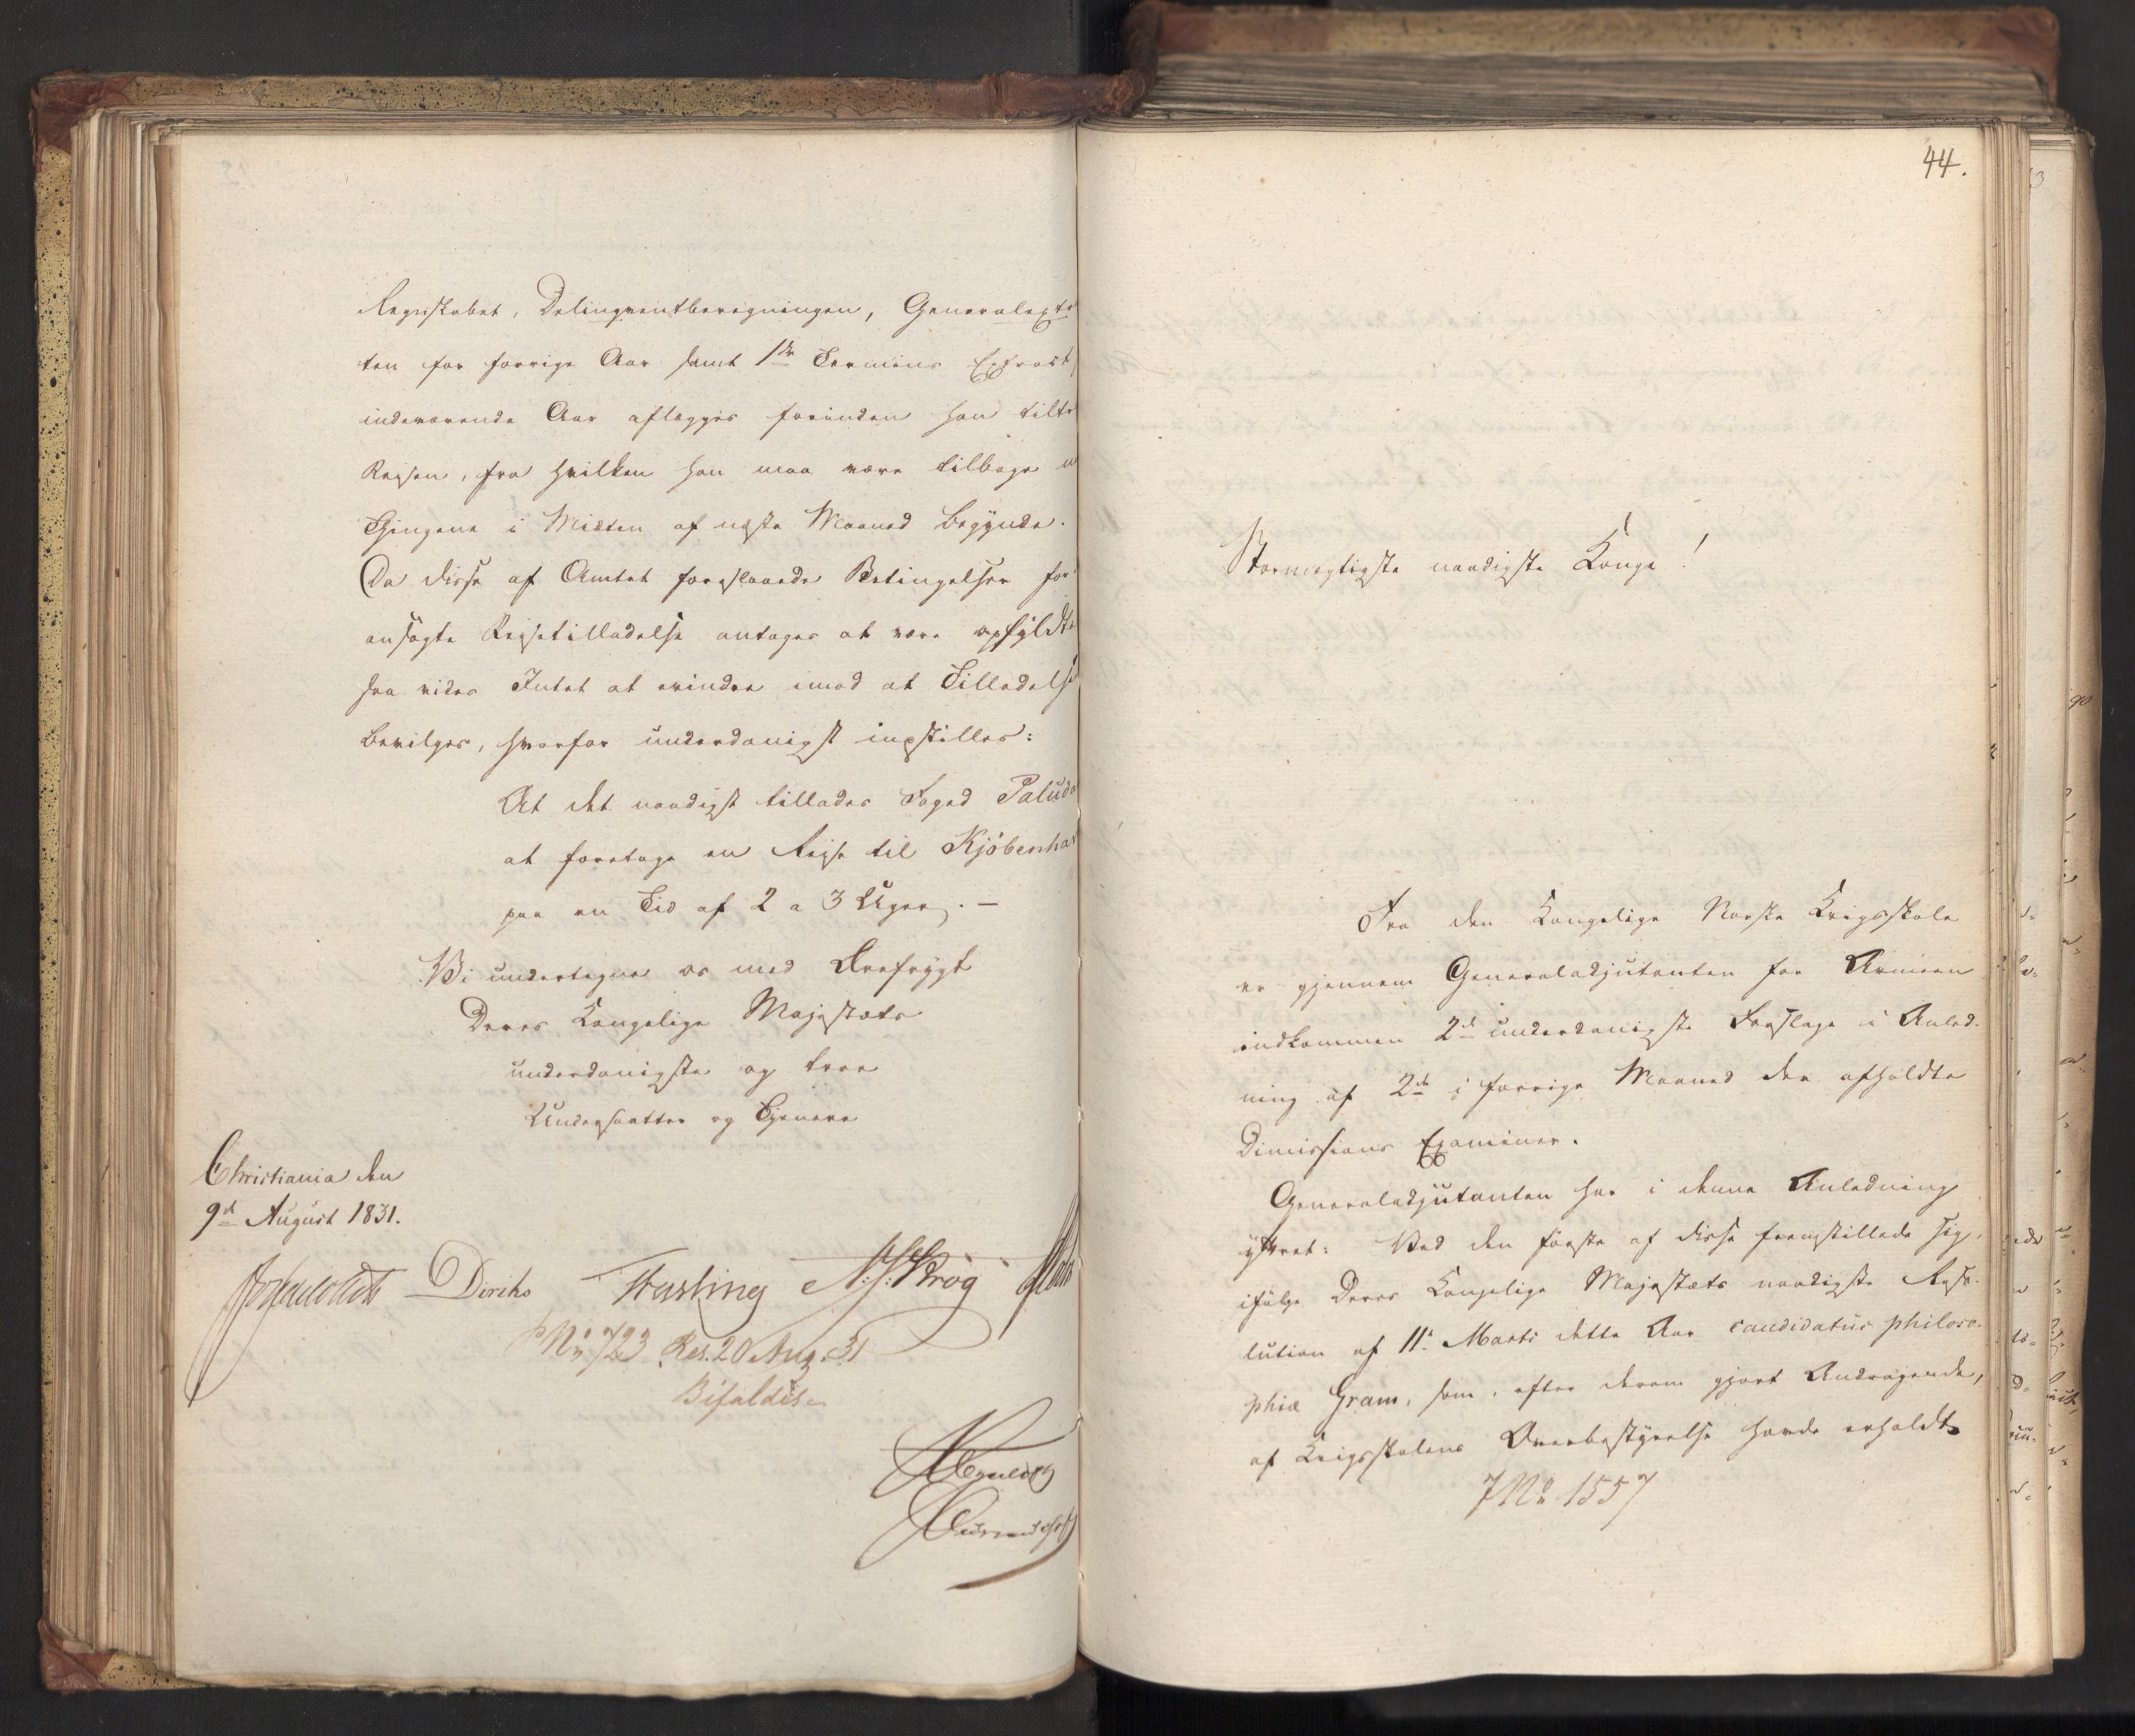 Regnskabet, Delinqventberegningen, Generalextr
ten for forrige Aar samt 1ste Termins Extract
indeværende Aar aflægges forinden han tiltr
Reisen, fra hvilken han maa være tilbage
Thingene i Midten af næste Maaned begynde.
Da disse af Amtet foreslaaede Betingelser for
ansøgte Reisetilladelse antages at være opfyldte
saa vides Intet at erindre imod at Tilladelse
bevilges, hvorfor underdanigst indstilles:
At det naadigst tillades Foged Paluda
at foretage en Reise til Kjøbenhav
paa en Tid af 2 a 3 Uger. —
Vi undertegne os med Ærefrygt
Deres Kongelige Majestæts
underdanigste og troe
Undersaatter og Tjenere
Christiania den
9d August 1831.
Diriks Fasting N. J. Krog
No 723. Res. 20 Aug. 31
Bifaldes
44.
Stormægtigste naadigste Konge!
Fra den Kongelige Norske Krigsskole
er gjennem Generaladjutanten for Armeen
indkommen 2de underdanigste Forslage i Anled-
ning af 2de i forrige Maaned der afholdte
Dimissions Examiner.
Generaladjutanten har i denne Anledning
yttret: Ved den første af disse fremstillede sig,
ifølge Deres Kongelige Majestæts naadigste Reso-
lution af 11te Marts dette Aar candidatus philoso-
phiæ Gram, som, efter derom gjort Andragende,
af Krigsskolens Overbestyrelse havde erholdt
No 1557